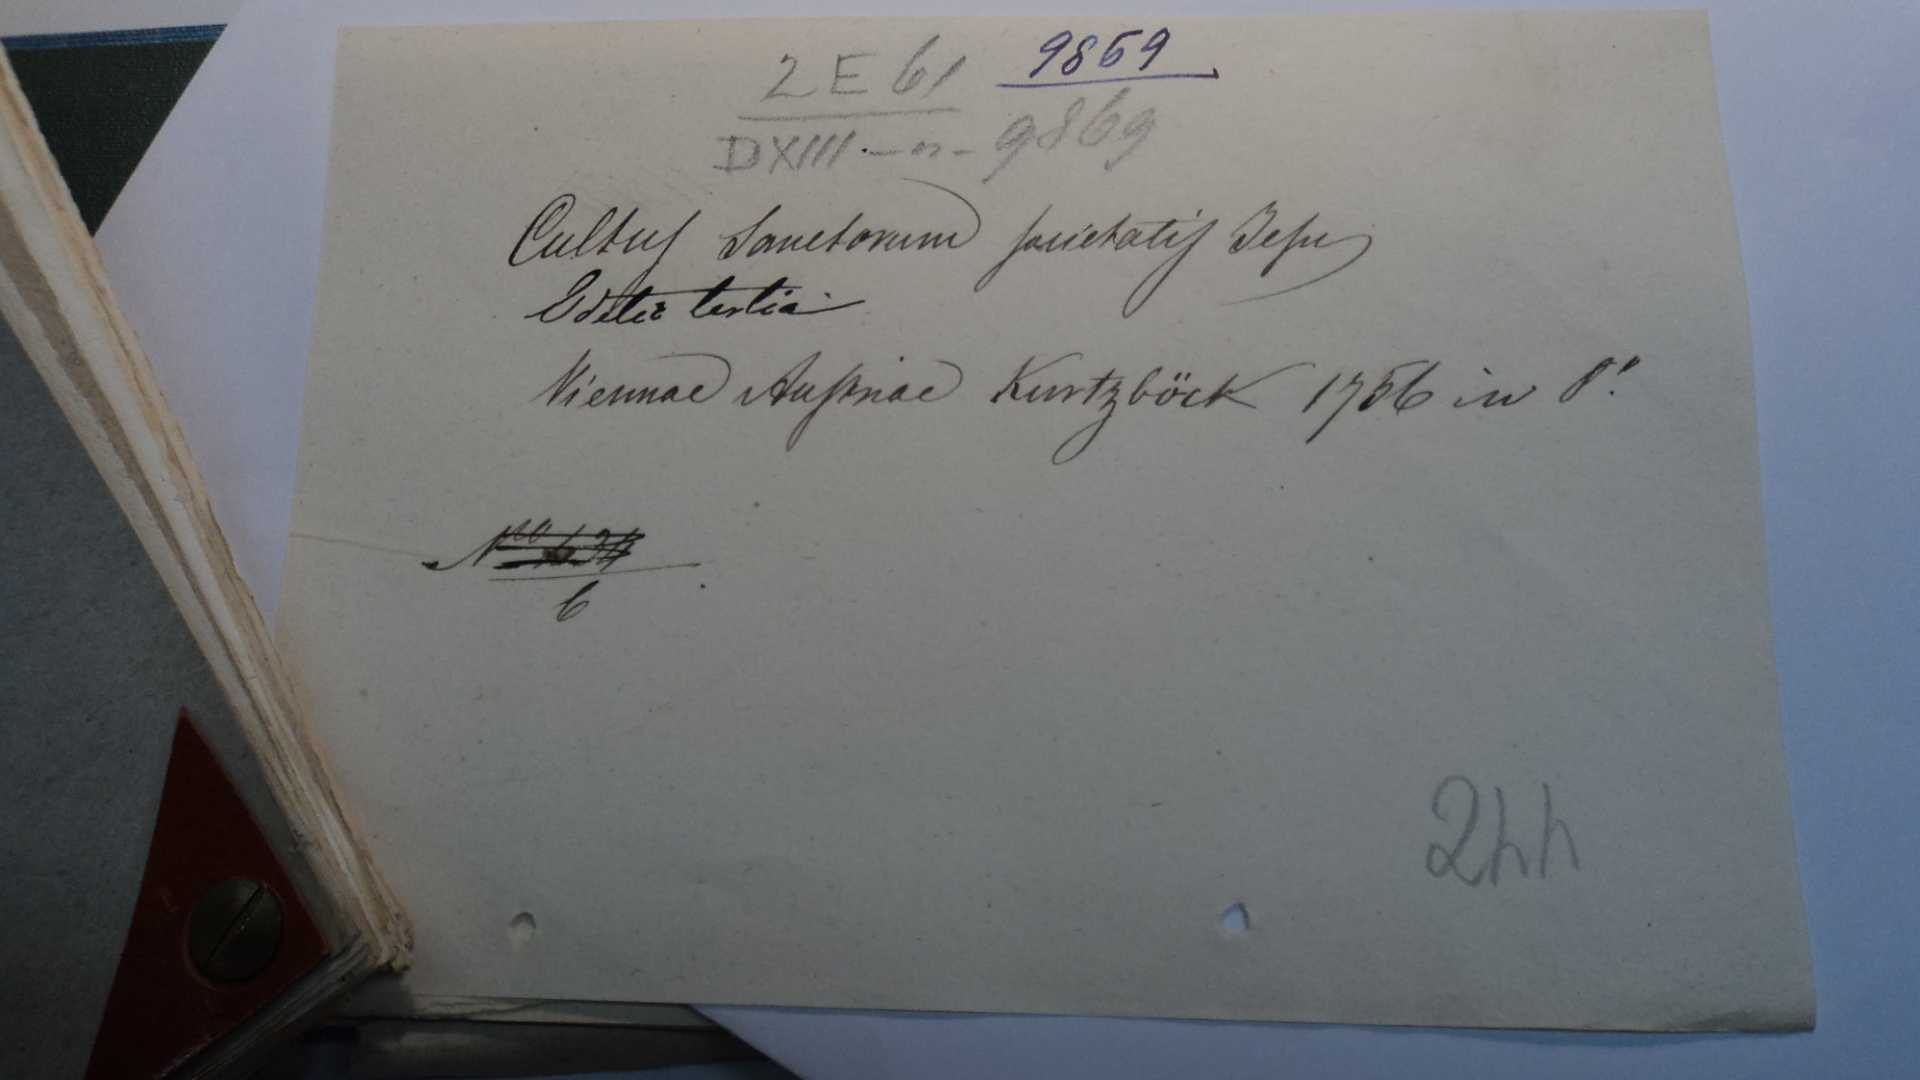 2 E 61 9869
DXIII - 9869
Cultus Sanctorum societatis Jesu
Editio tertia
Viennae Austriae Kurtzböck 1756 in 8°.
6
244